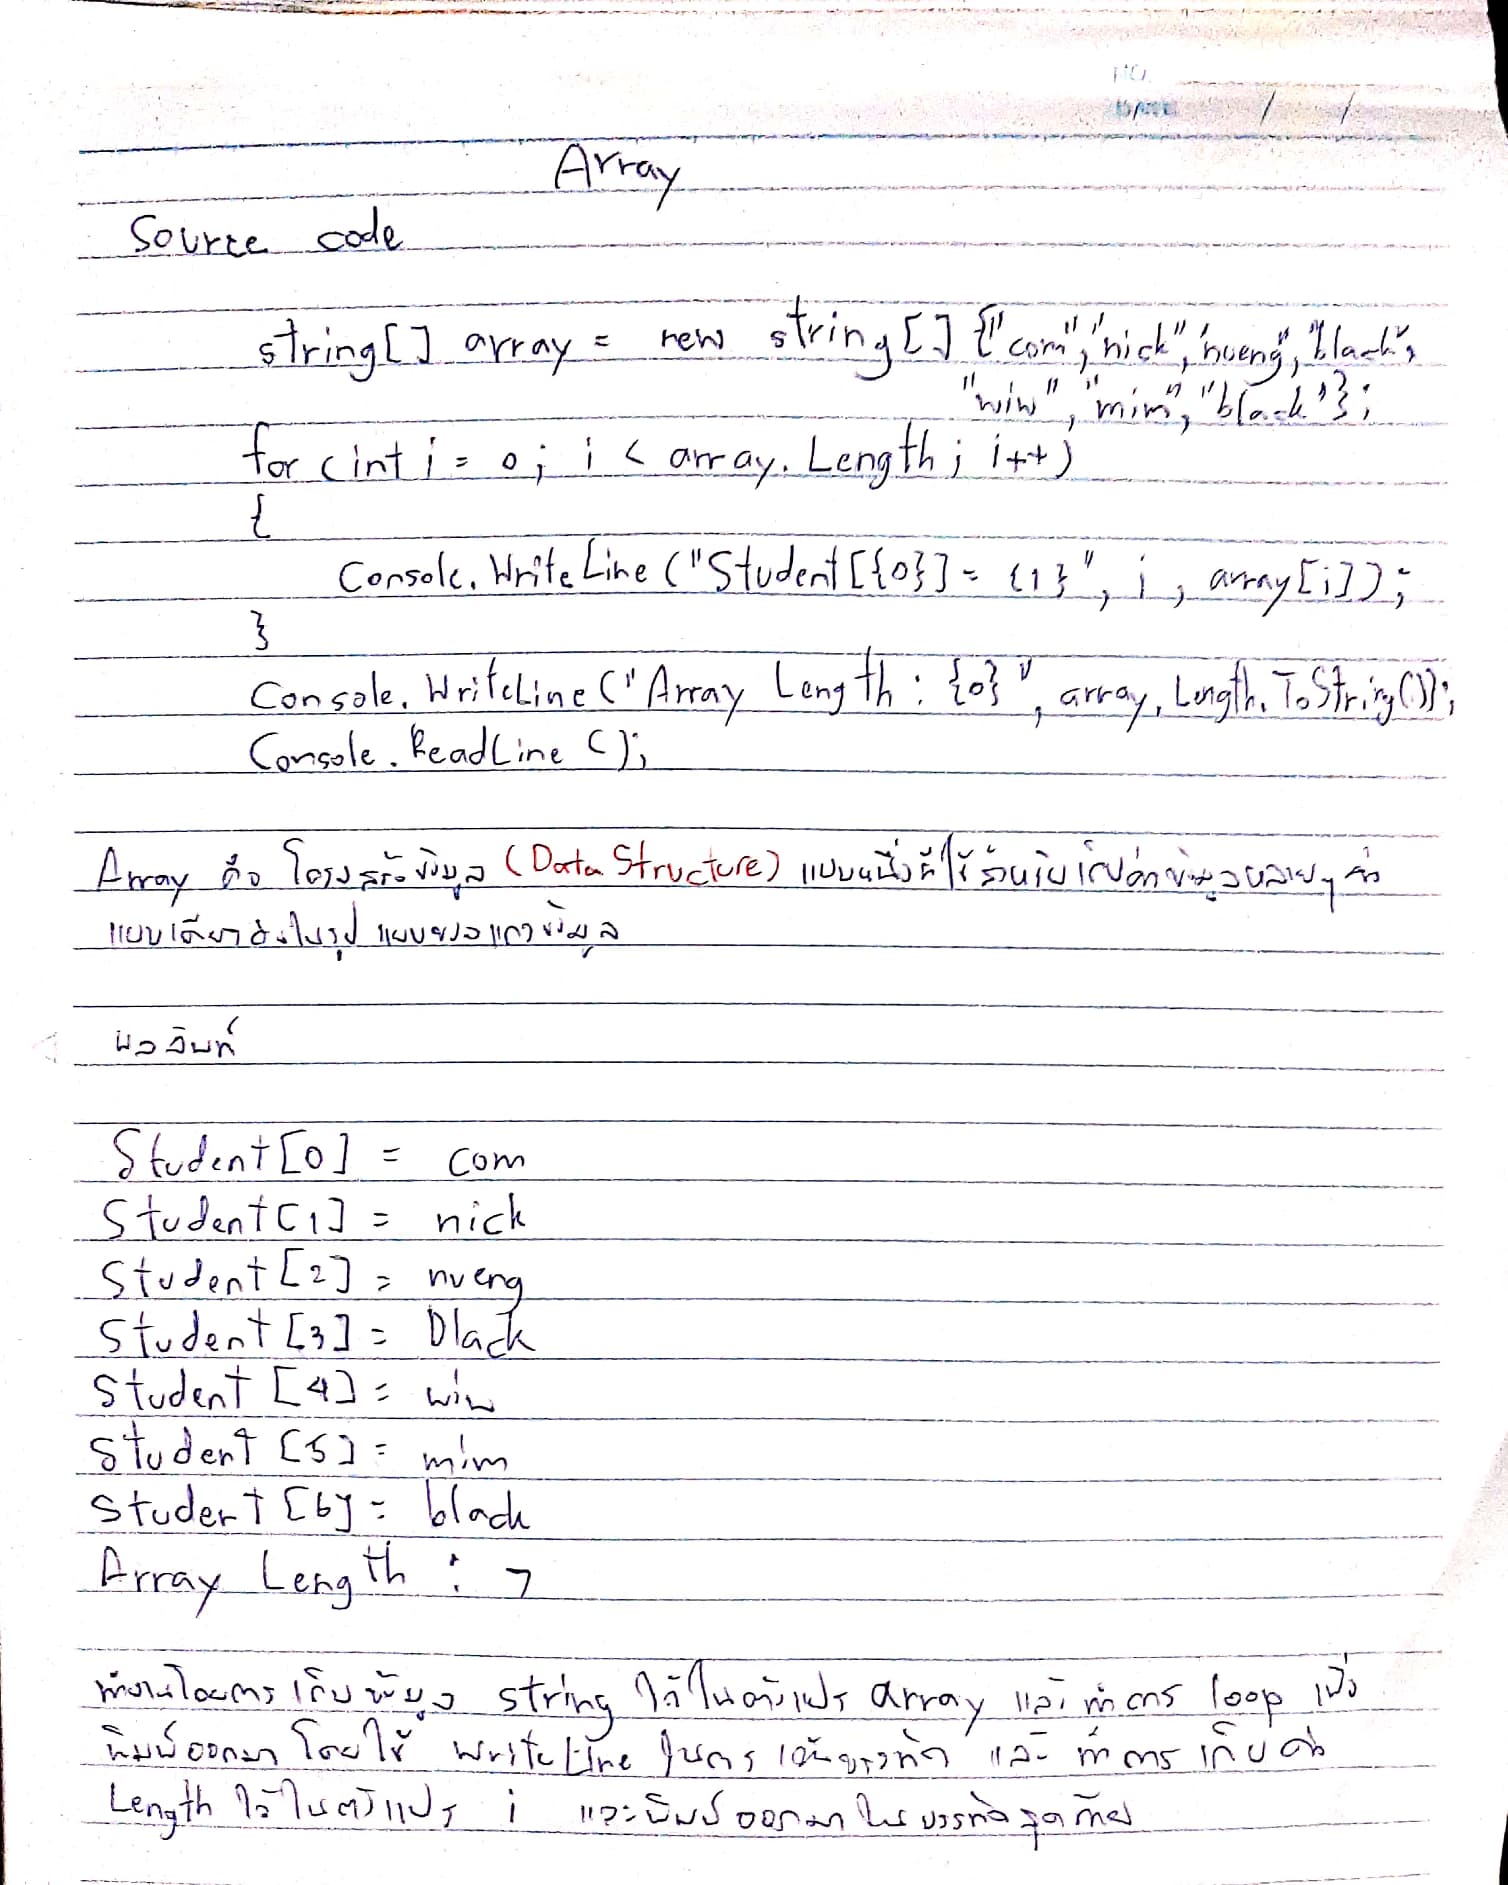 NO.
DATE / /
Array
Source code
string[] array = new string[] {"com","nick","nueng","black",
"win","mim","black"};
for (int i = 0; i < array.Length; i++)
{
Console.WriteLine("Student[{0}] = {1}", i, array[i]);
}
Console.WriteLine("Array Length : {0}", array.Length.ToString());
Console.ReadLine();
Array คือ โครงสร้างข้อมูล (Data Structure) แบบหนึ่งที่ใช้สำหรับเก็บค่าข้อมูลหลายๆ ค่า
แบบเดียวกันในรูปแบบของแถวข้อมูล
ผลลัพท์
Student[0] = com
Student[1] = nick
Student[2] = nueng
Student[3] = black
Student[4] = win
Student[5] = mim
Student[6] = black
Array Length : 7
ทำงานโดยการเก็บข้อมูล string ไว้ในตัวแปร array และทำการ loop เพื่อ
พิมพ์ออกมา โดยใช้ WriteLine ในการ เว้นบรรทัด และ ทำการเก็บค่า
Length ไว้ในตัวแปร i และพิมพ์ออกมาในบรรทัดสุดท้าย